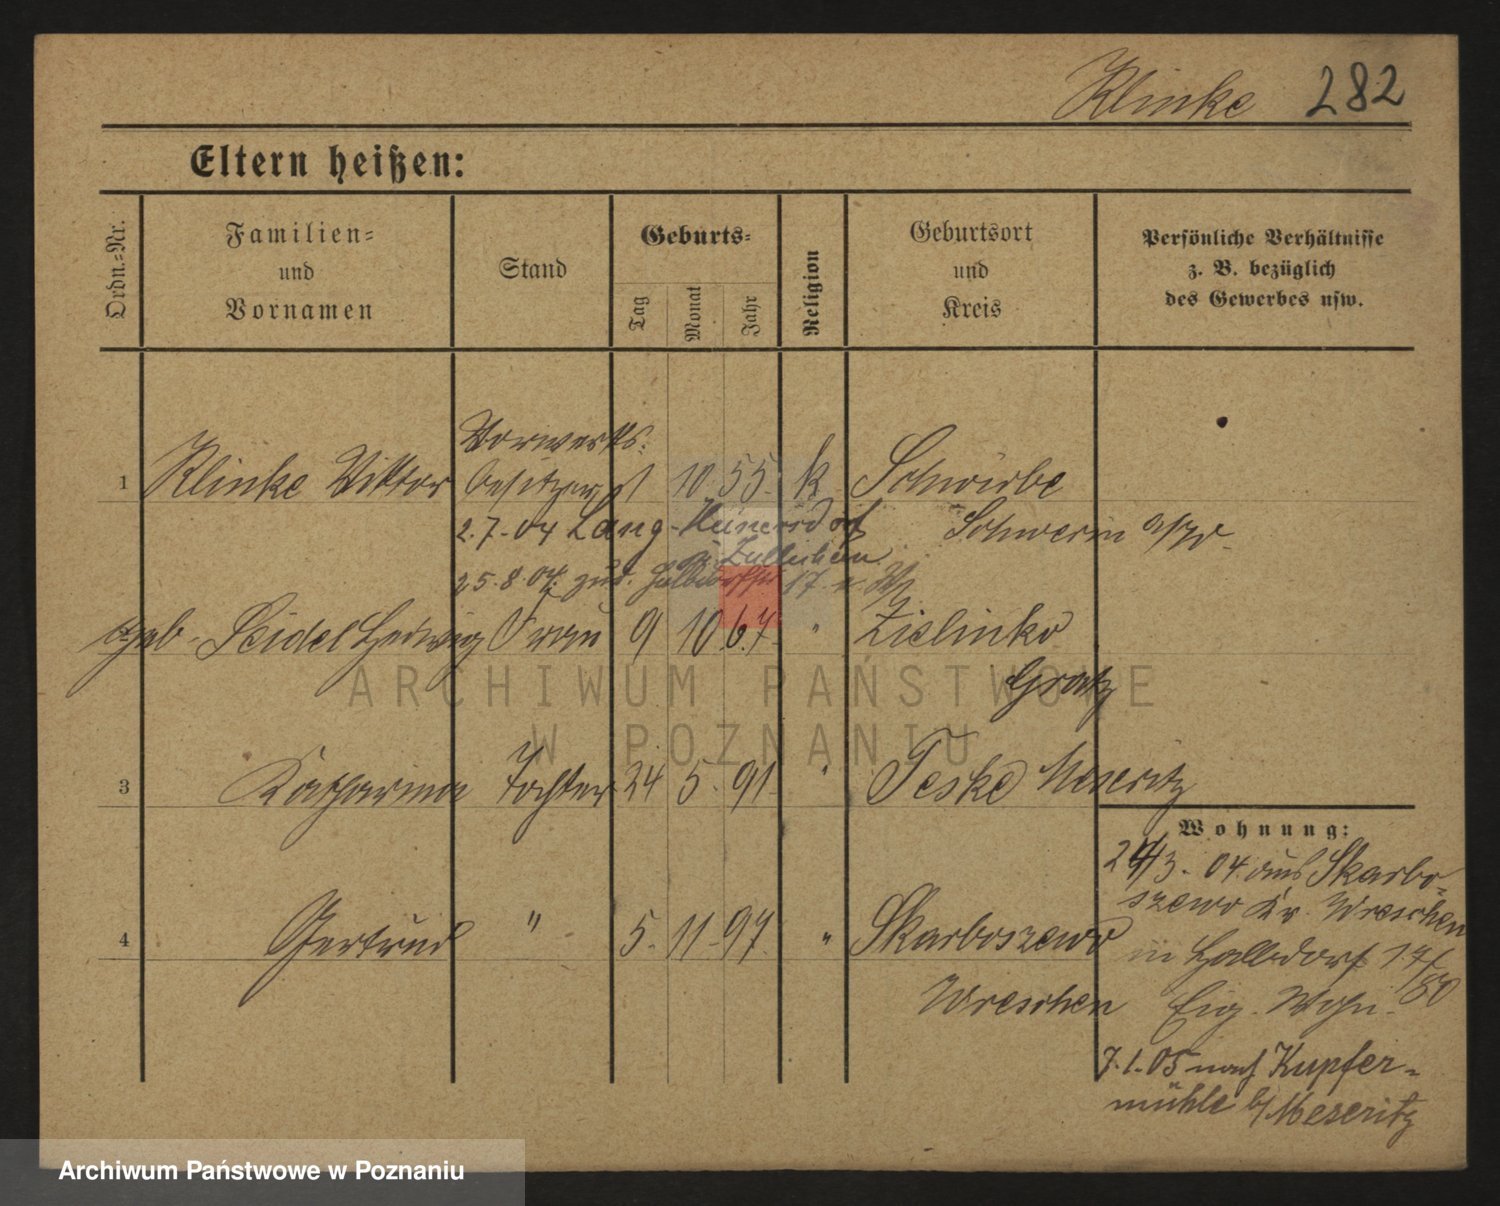 Klinke 282
Eltern heißen:
Ordn.-Nr.
Familien-
und
Vornamen
Stand
Geburts-
Tag
Monat
Jahr
Religion
Geburtsort
und
Kreis
Persönliche Verhältnisse
z. B. bezüglich
des Gewerbes usw.
Vorwerks-
1 Klinke Viktor besitzer 10 55 k Schwirbe
2.7.04 Lang-Heinersdorf Schwerin a/W.
b/ Züllichau
25.8.04. zur. Halbdorfstr 17
geb. Seidel Hedwig Frau 9 10 67 " Zielinko
Gratz
3 Katharina Tochter 24 5. 91 " Teske Meseritz
4 Gertrud " 5. 11. 97 " Skarboszewo
Wreschen
Wohnung:
24/3. 04 aus Skarbo-
szewo Kr. Wreschen
in Halbdorf 17/
Eig. Wohn.
7.1.05 nach Kupfer-
mühle b/Meseritz
ARCHIWUM PAŃSTWOWE
W POZNANIU
Archiwum Państwowe w Poznaniu